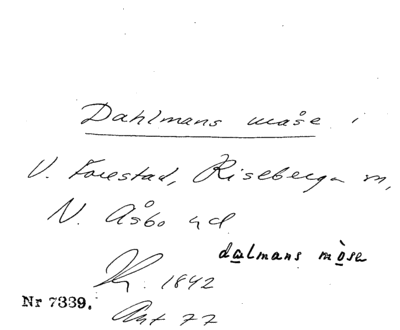 Dahlmans måse i
V. Forestad, Riseberga sn,
N. Åsbo hd
dalmans mòse
1842
Nr 7339.
Akt 77